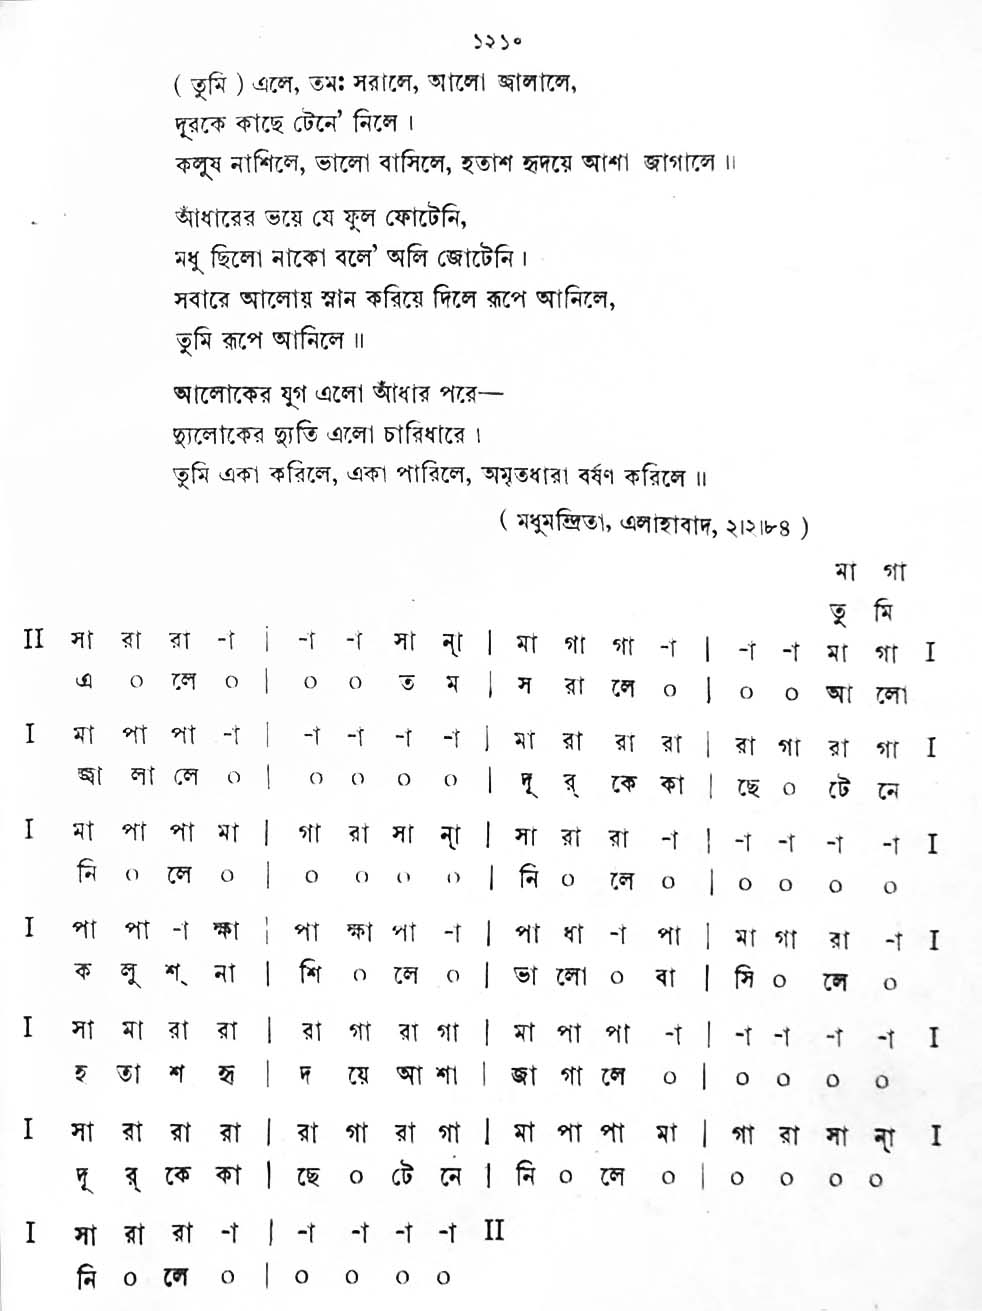 ১২১০
( তুমি ) এলে, তমঃ সরালে, আলো জ্বালালে,
দূরকে কাছে টেনে’ নিলে ।
কলুষ নাশিলে, ভালো বাসিলে, হতাশ হৃদয়ে আশা জাগালে ॥
আঁধারের ভয়ে যে ফুল ফোটেনি,
মধু ছিলো নাকো বলে’ অলি জোটেনি ।
সবারে আলোয় স্নান করিয়ে দিলে রূপে আনিলে,
তুমি রূপে আনিলে ॥
আলোকের যুগ এলো আঁধার পরে—
দ্যুলোকের দ্যুতি এলো চারিধারে ।
তুমি একা করিলে, একা পারিলে, অমৃতধারা বর্ষণ করিলে ॥
( মধুমন্দ্রিতা, এলাহাবাদ, ২।২।৮৪ )
মা গা
তু মি
II সা রা রা -া | -া -া সা ন্া | মা গা গা -া | -া -া মা গা I
এ ০ লে ০ | ০ ০ ত ম | স রা লে ০ | ০ ০ আ লো
I মা পা পা -া | -া -া -া -া | মা রা রা রা | রা গা রা গা I
জ্বা লা লে ০ | ০ ০ ০ ০ | দূ র্ কে কা | ছে ০ টে নে
I মা পা পা মা | গা রা সা ন্া | সা রা রা -া | -া -া -া -া I
নি ০ লে ০ | ০ ০ ০ ০ | নি ০ লে ০ | ০ ০ ০ ০
I পা পা -া ক্ষা | পা ক্ষা পা -া | পা ধা -া পা | মা গা রা -া I
ক লু শ্ না | শি ০ লে ০ | ভা লো ০ বা | সি ০ লে ০
I সা মা রা রা | রা গা রা গা | মা পা পা -া | -া -া -া -া I
হ তা শ হৃ | দ য়ে আ শা | জা গা লে ০ | ০ ০ ০ ০
I সা রা রা রা | রা গা রা গা | মা পা পা মা | গা রা সা ন্া I
দূ র্ কে কা | ছে ০ টে নে | নি ০ লে ০ | ০ ০ ০ ০
I সা রা রা -া | -া -া -া -া II
নি ০ লে ০ | ০ ০ ০ ০